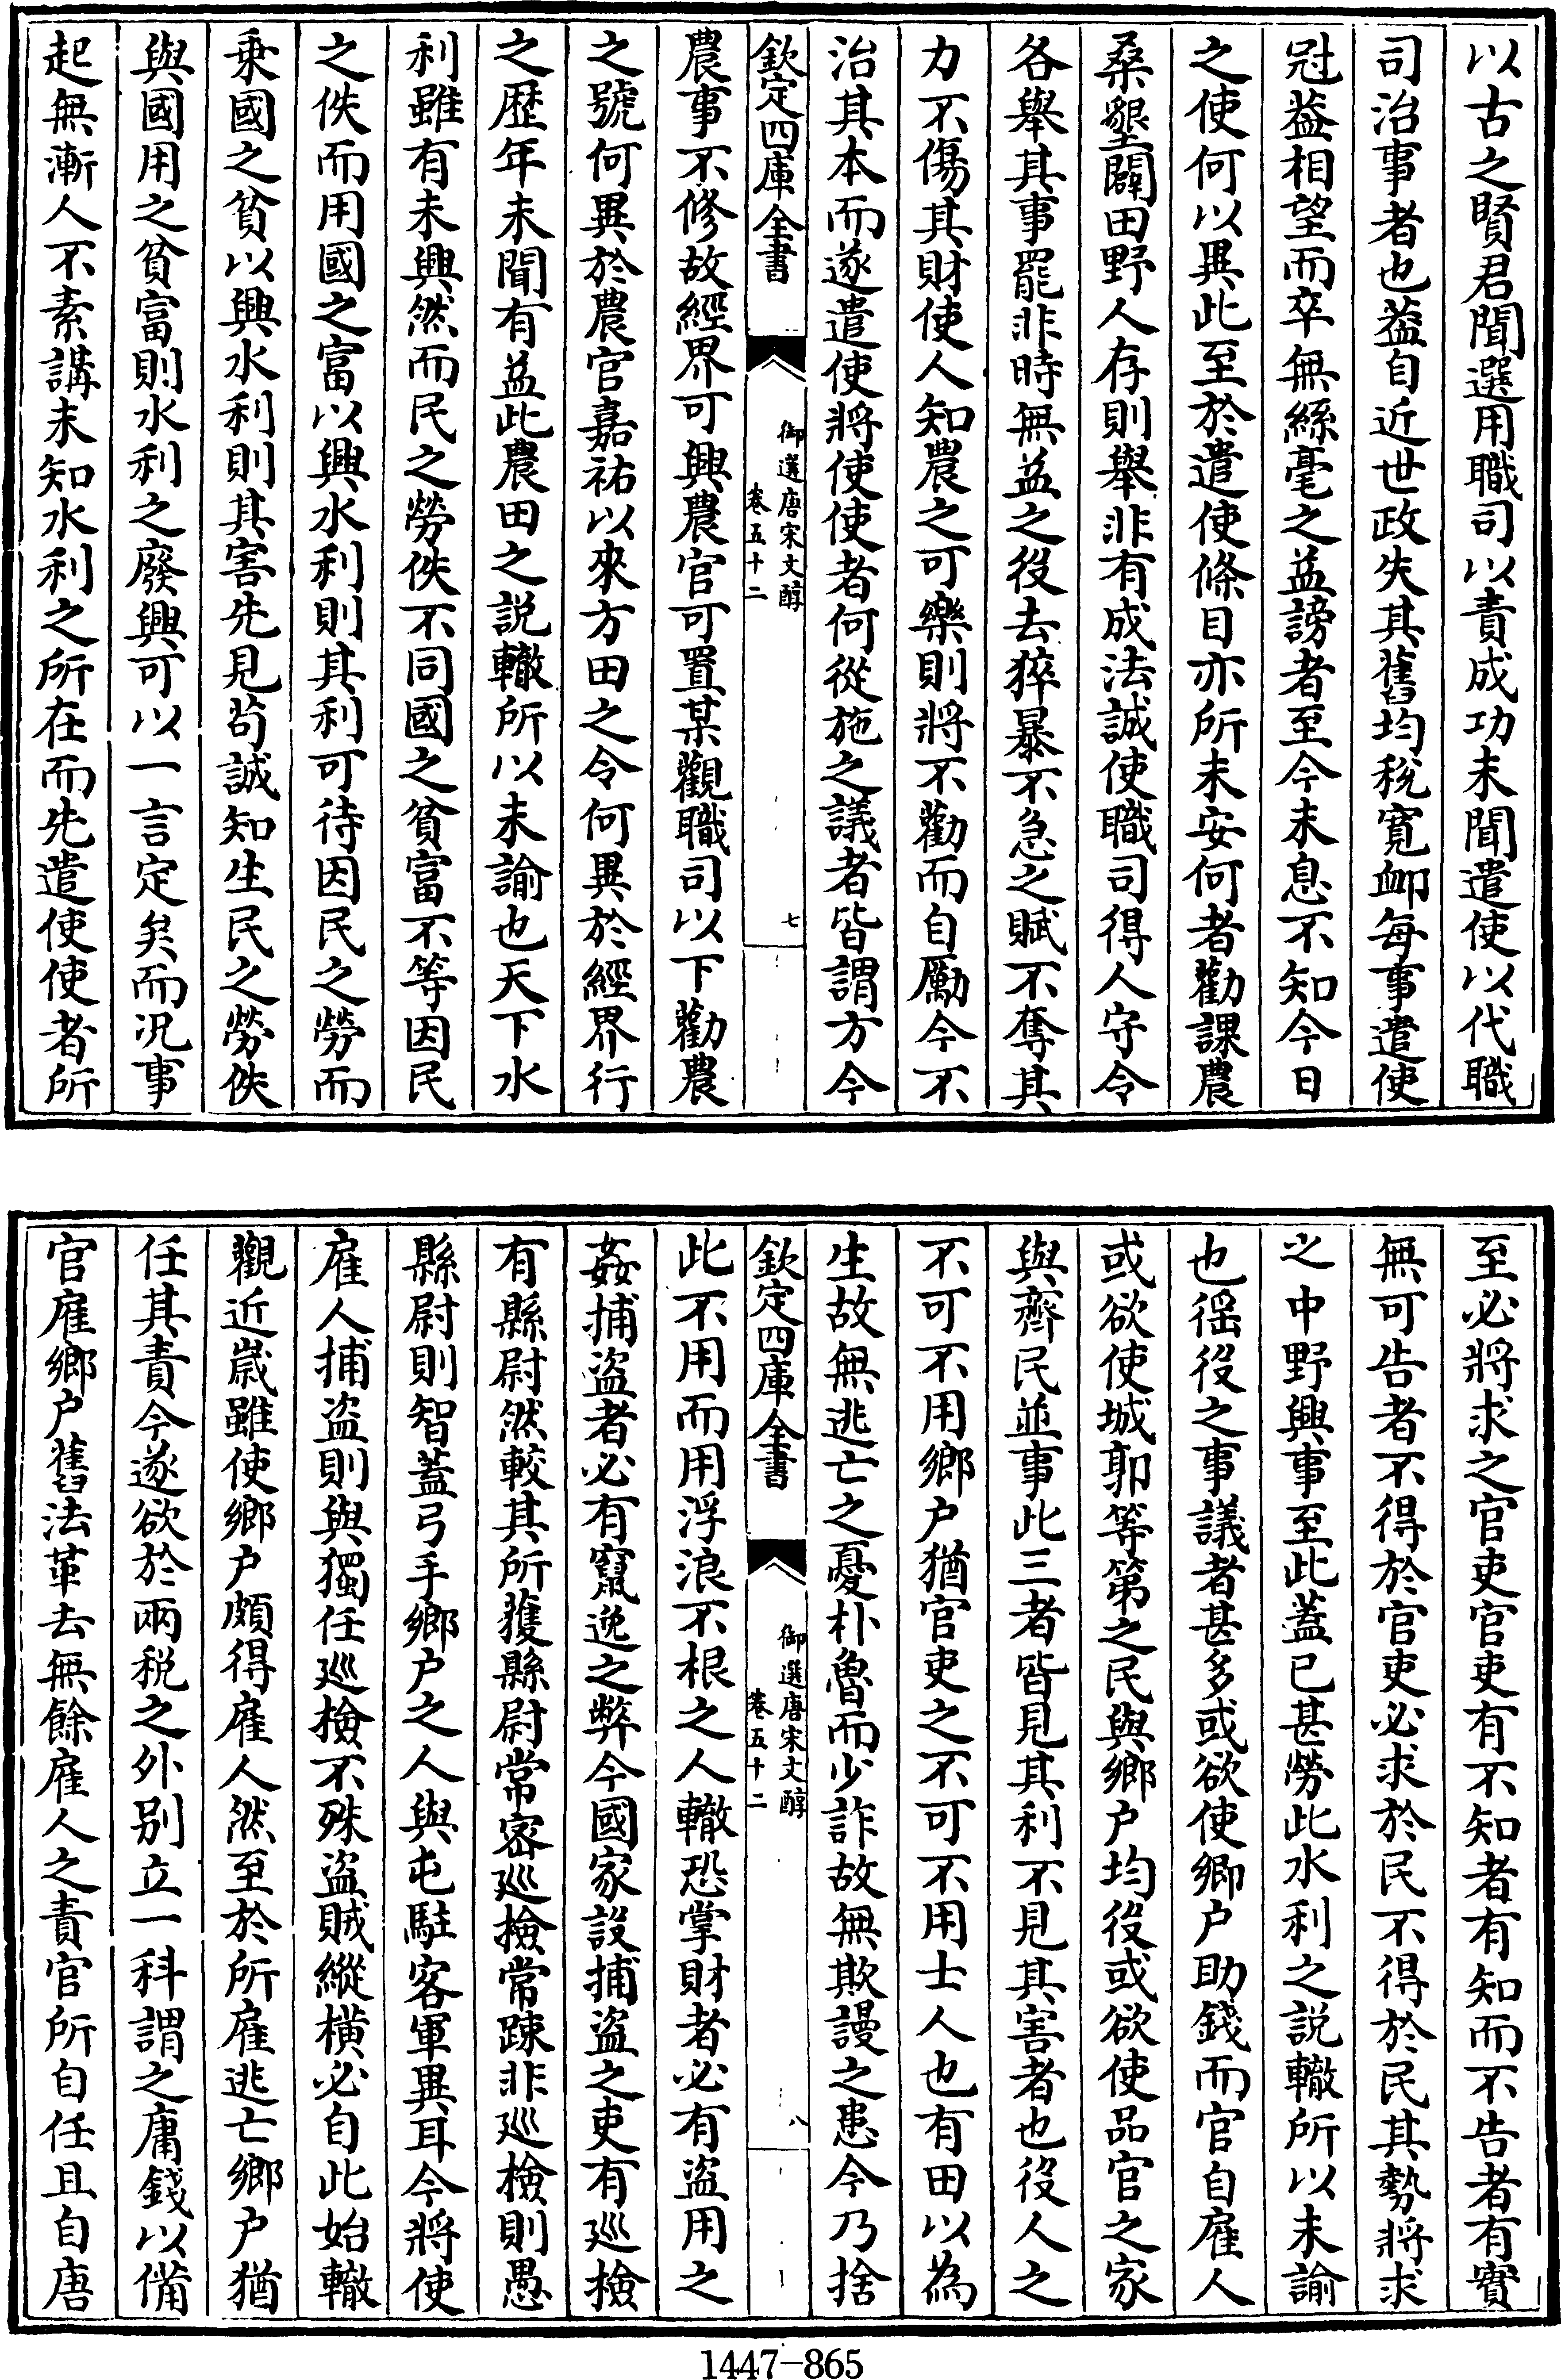 以古之賢君聞選用職司以責成功未聞遣使以代職
司治事者也葢自近世政失其舊均稅寛卹每事遣使
冠葢相望而卒無絲毫之益謗者至今未息不知今日
之使何以異此至於遣使條目亦所未安何者勸課農
桑墾闢田野人存則舉非有成法誠使職司得人守令
各舉其事罷非時無益之役去猝暴不急之賦不奪其
力不傷其財使人知農之可樂則將不勸而自勵今不
治其本而遂遣使將使使者何從施之議者皆謂方今
欽定四庫全書
御選唐宋文醇
卷五十二
七
農事不修故經界可興農官可置某觀職司以下勸農
之號何異於農官嘉祐以來方田之令何異於經界行
之歴年未聞有益此農田之說轍所以未諭也天下水
利雖有未興然而民之勞佚不同國之貧富不等因民
之佚而用國之富以興水利則其利可待因民之勞而
乗國之貧以興水利則其害先見苟誠知生民之勞佚
與國用之貧富則水利之廢興可以一言定矣而况事
起無漸人不素講未知水利之所在而先遣使使者所
至必將求之官吏官吏有不知者有知而不告者有實
無可告者不得於官吏必求於民不得於民其勢將求
之中野興事至此蓋已甚勞此水利之説轍所以未諭
也徭役之事議者甚多或欲使鄉户助錢而官自雇人
或欲使城郭等第之民與鄉户均役或欲使品官之家
與齊民並事此三者皆見其利不見其害者也役人之
不可不用鄉户猶官吏之不可不用士人也有田以為
生故無逃亡之憂朴魯而少詐故無欺謾之患今乃捨
欽定四庫全書
御選唐宋文醇
卷五十二
八
此不用而用浮浪不根之人轍恐掌財者必有盜用之
姦捕盜者必有竄逸之弊今國家設捕盜之吏有巡檢
有縣尉然較其所獲縣尉常密巡檢常疎非巡檢則愚
縣尉則智蓋弓手鄉户之人與屯駐客軍異耳今將使
雇人捕盜則與獨任巡檢不殊盜賊縱橫必自此始轍
觀近嵗雖使鄉户頗得雇人然至於所雇逃亡鄉户猶
任其責今遂欲於兩税之外别立一科謂之庸錢以備
官雇鄉户舊法革去無餘雇人之責官所自任且自唐
1447-865